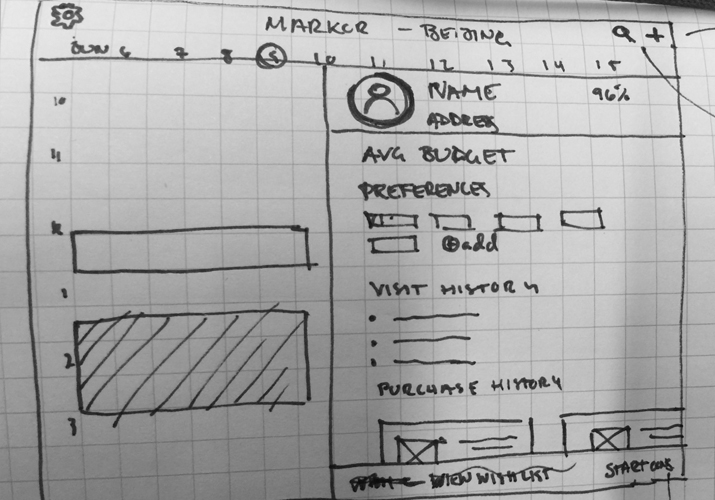 MARKOR - BEIJING
JUN 6 7 8 9 10 11 12 13 14 15
NAME 96%
ADDRES
10
11
12
1
2
3
AVG BUDGET
PREFERENCES
⊕ add
VISIT HISTORY
PURCHASE HISTORY
VIEW WISHLIST
START CONS